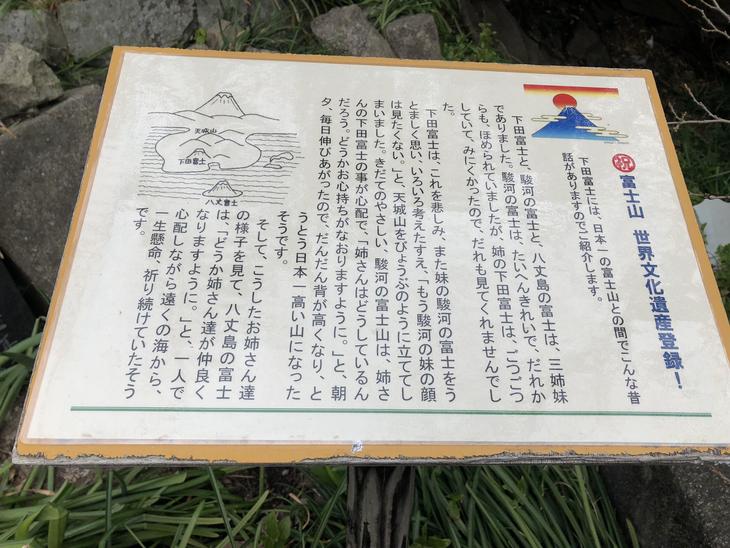 ㊗富士山 世界文化遺産登録!
下田富士には、日本一の富士山との間でこんな昔
話がありますのでご紹介します。
下田富士と、駿河の富士と、八丈島の富士は、三姉妹
でありました。駿河の富士は、たいへんきれいで、だれか
らも、ほめられていましたが、姉の下田富士は、ごつごつ
していて、みにくかったので、だれも見てくれませんでし
た。
下田富士は、これを悲しみ、また妹の駿河の富士をう
とましく思い、いろいろ考えたすえ、「もう駿河の妹の顔
は見たくない。」と、天城山をびょうぶのように立ててし
まいました。きだてのやさしい、駿河の富士山は、姉さ
んの下田富士の事が心配で、「姉さんはどうしているん
だろう。どうかお心持ちがなおりますように。」と、朝
夕、毎日伸びあがったので、だんだん背が高くなり、と
うとう日本一高い山になった
そうです。
そして、こうしたお姉さん達
の様子を見て、八丈島の富士
は、「どうか姉さん達が仲良く
なりますように。」と、一人で
心配しながら遠くの海から、
一生懸命、祈り続けていたそう
です。
天城山
下田富士
八丈富士